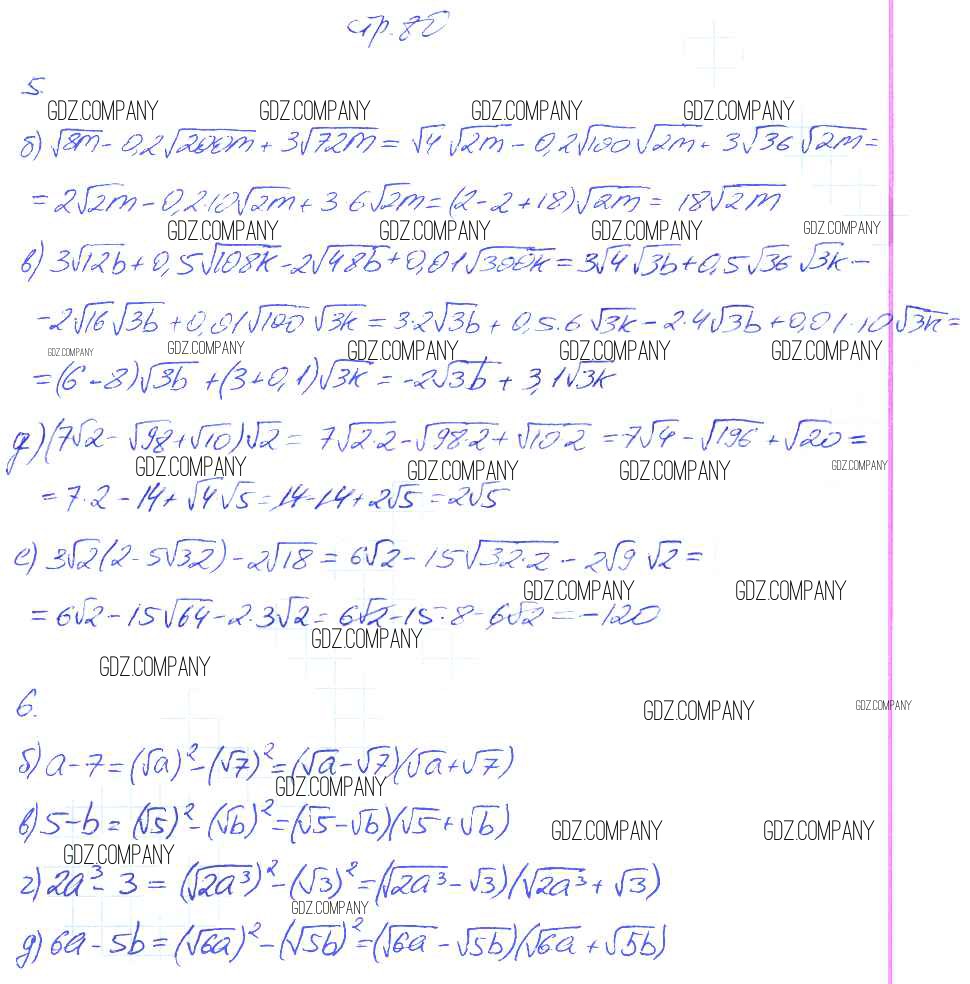 стр. 80
5.
GDZ.COMPANY GDZ.COMPANY GDZ.COMPANY GDZ.COMPANY
б) √8m - 0,2√200m + 3√72m = √4 √2m - 0,2√100 √2m + 3√36 √2m =
= 2√2m - 0,2·10√2m + 3·6√2m = (2-2+18)√2m = 18√2m
GDZ.COMPANY GDZ.COMPANY GDZ.COMPANY GDZ.COMPANY
в) 3√12b + 0,5√108k - 2√48b + 0,01√300k = 3√4 √3b + 0,5√36 √3k -
- 2√16 √3b + 0,01√100 √3k = 3·2√3b + 0,5·6√3k - 2·4√3b + 0,01·10√3k =
GDZ.COMPANY GDZ.COMPANY GDZ.COMPANY GDZ.COMPANY GDZ.COMPANY
= (6-8)√3b + (3+0,1)√3k = -2√3b + 3,1√3k
д) (7√2 - √98 + √10)√2 = 7√2·2 - √98·2 + √10·2 = 7√4 - √196 + √20 =
GDZ.COMPANY GDZ.COMPANY GDZ.COMPANY GDZ.COMPANY
= 7·2 - 14 + √4 √5 = 14 - 14 + 2√5 = 2√5
е) 3√2(2 - 5√32) - 2√18 = 6√2 - 15√32·2 - 2√9 √2 =
GDZ.COMPANY GDZ.COMPANY
= 6√2 - 15√64 - 2·3√2 = 6√2 - 15·8 - 6√2 = -120
GDZ.COMPANY
GDZ.COMPANY
6.
GDZ.COMPANY GDZ.COMPANY
б) a - 7 = (√a)² - (√7)² = (√a - √7)(√a + √7)
GDZ.COMPANY
в) 5 - b = (√5)² - (√b)² = (√5 - √b)(√5 + √b)
GDZ.COMPANY GDZ.COMPANY
GDZ.COMPANY
г) 2a³ - 3 = (√2a³)² - (√3)² = (√2a³ - √3)(√2a³ + √3)
GDZ.COMPANY
д) 6a - 5b = (√6a)² - (√5b)² = (√6a - √5b)(√6a + √5b)